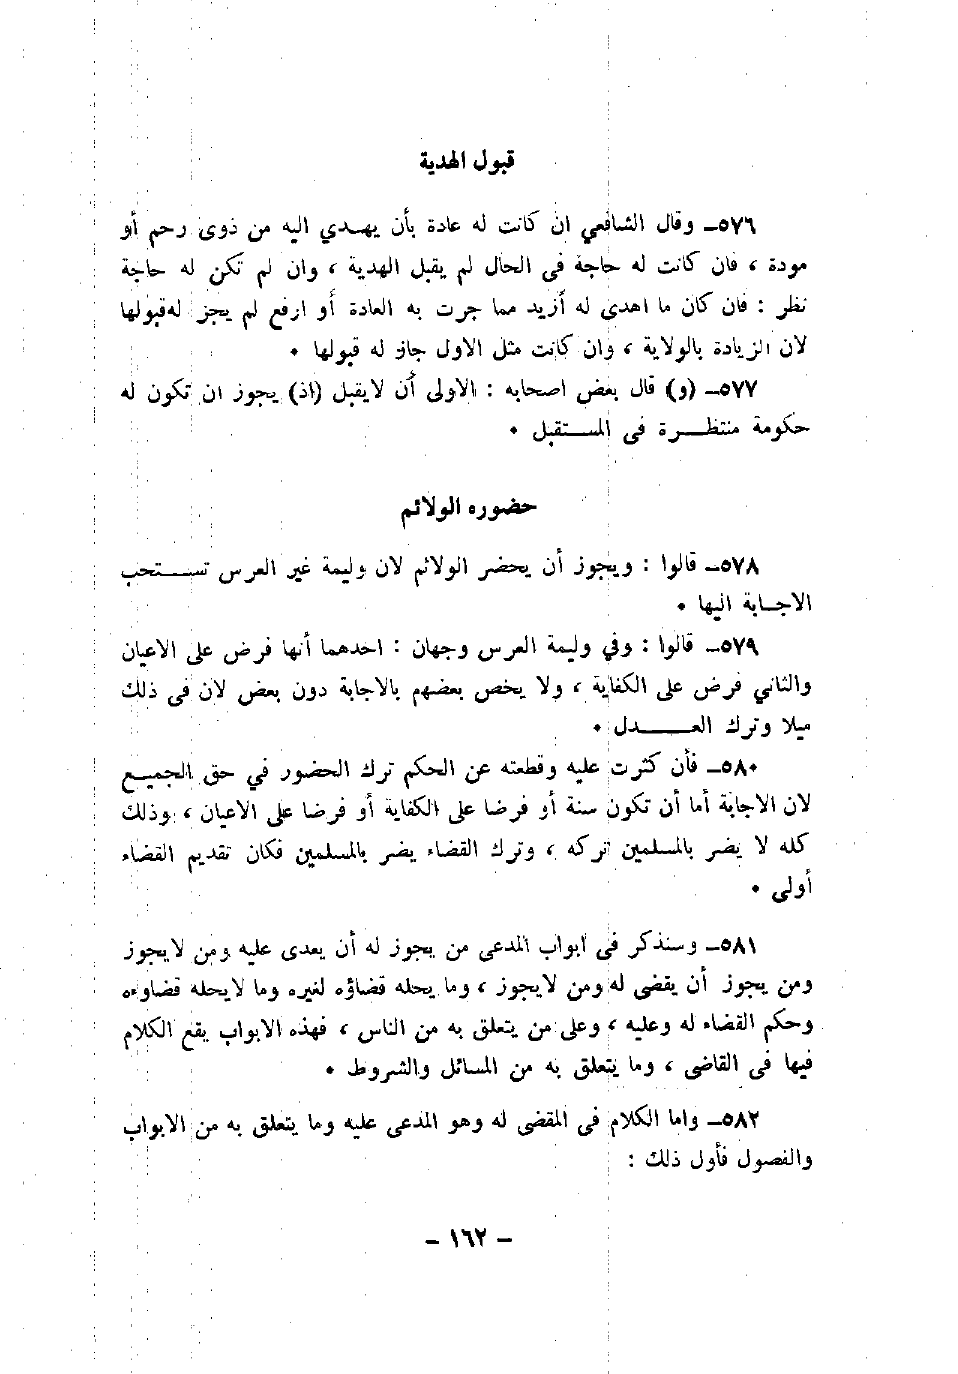 قبول الهدية
٥٧٦ـ وقال الشافعي ان كانت له عادة بأن يهــدي اليه من ذوى رحم أو
مودة ، فان كانت له حاجة فى الحال لم يقبل الهدية ، وان لم تكن له حاجة
نظر : فان كان ما اهدى له أزيد مما جرت به العادة أو ارفع لم يجز له قبولها
لان الزيادة بالولاية ، وان كانت مثل الاول جاز له قبولها •
٥٧٧ـ (و) قال بعض اصحابه : الاولى أن لايقبل (اذ) يجوز ان تكون له
حكومة منتظــــرة فى المســـتقبل •
حضوره الولائم
٥٧٨ـ قالوا : ويجوز أن يحضر الولائم لان وليمة غير العرس تســـتحب
الاجــابة اليها •
٥٧٩ـ قالوا : وفي وليمة العرس وجهان : احدهما أنها فرض على الاعيان
والثاني فرض على الكفاية ، ولا يخص بعضهم بالاجابة دون بعض لان فى ذلك
ميلا وترك العــــــدل •
٥٨٠ـ فأن كثرت عليه وقطعته عن الحكم ترك الحضور في حق الجميـع
لان الاجابة أما أن تكون سنة أو فرضا على الكفاية أو فرضا على الاعيان ، وذلك
كله لا يضر بالمسلمين تركه ، وترك القضاء يضر بالمسلمين فكان تقديم القضاء
أولى •
٥٨١ـ وسنذكر فى ابواب المدعى من يجوز له أن يعدى عليه ومن لايجوز
ومن يجوز أن يقضى له ومن لايجوز ، وما يحله قضاؤه لغيره وما لايحله قضاوءه
وحكم القضاء له وعليه ، وعلى من يتعلق به من الناس ، فهذه الابواب يقع الكلام
فيها فى القاضى ، وما يتعلق به من المسائل والشروط •
٥٨٢ـ واما الكلام فى المقضى له وهو المدعى عليه وما يتعلق به من الابواب
والفصول فأول ذلك :
– ١٦٢ –